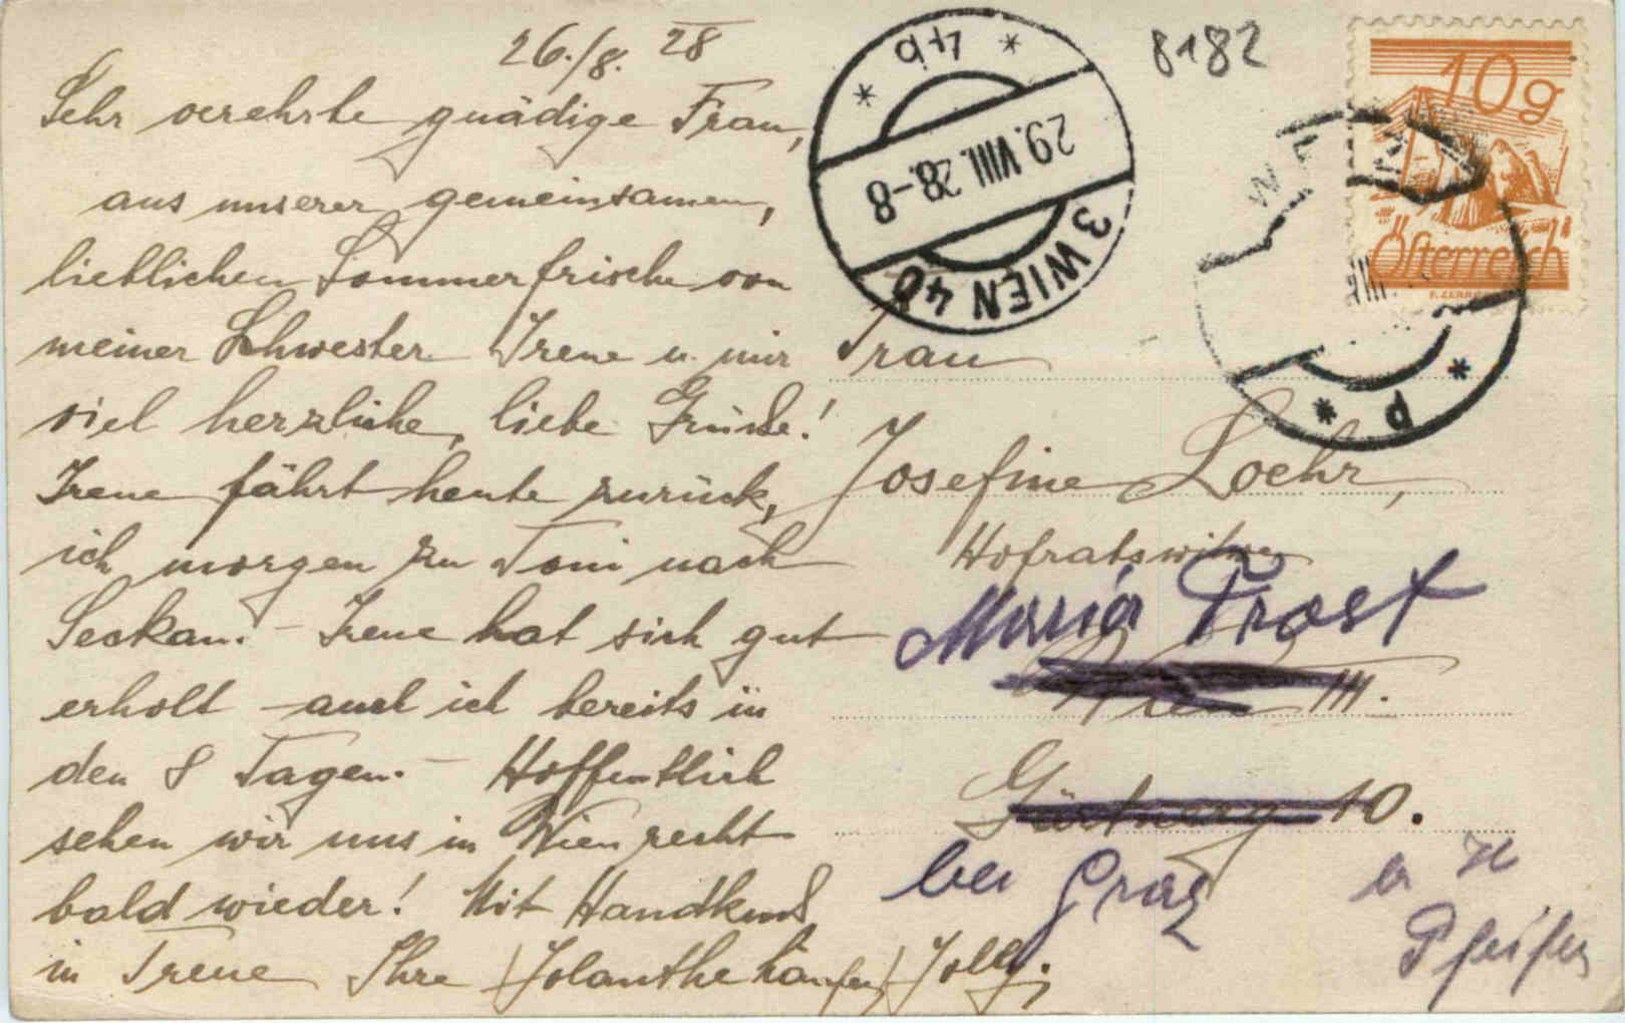 26./8. 28
Sehr verehrte gnädige Frau,
aus unserer gemeinsamen,
lieblichen Sommerfrische von
meiner Schwester Irene u. mir
viel herzliche, liebe Grüsse!
Irene fährt heute zurück,
ich morgen zu Toni nach
Seckau. – Irene hat sich gut
erholt – auch ich bereits in
den 8 Tagen. – Hoffentlich
sehen wir uns in Wien recht
bald wieder! Mit Handkuss
in Treue Ihre (Jolanthe) Jolly.
* 4b *
29.VIII.28.-8
3 WIEN 40
8182
10g
Österreich
VIII
* P *
Frau
Josefine Loehr,
Hofratswitwe
Maria Trost
Wien III.
10.
bei Graz
Pfeifer